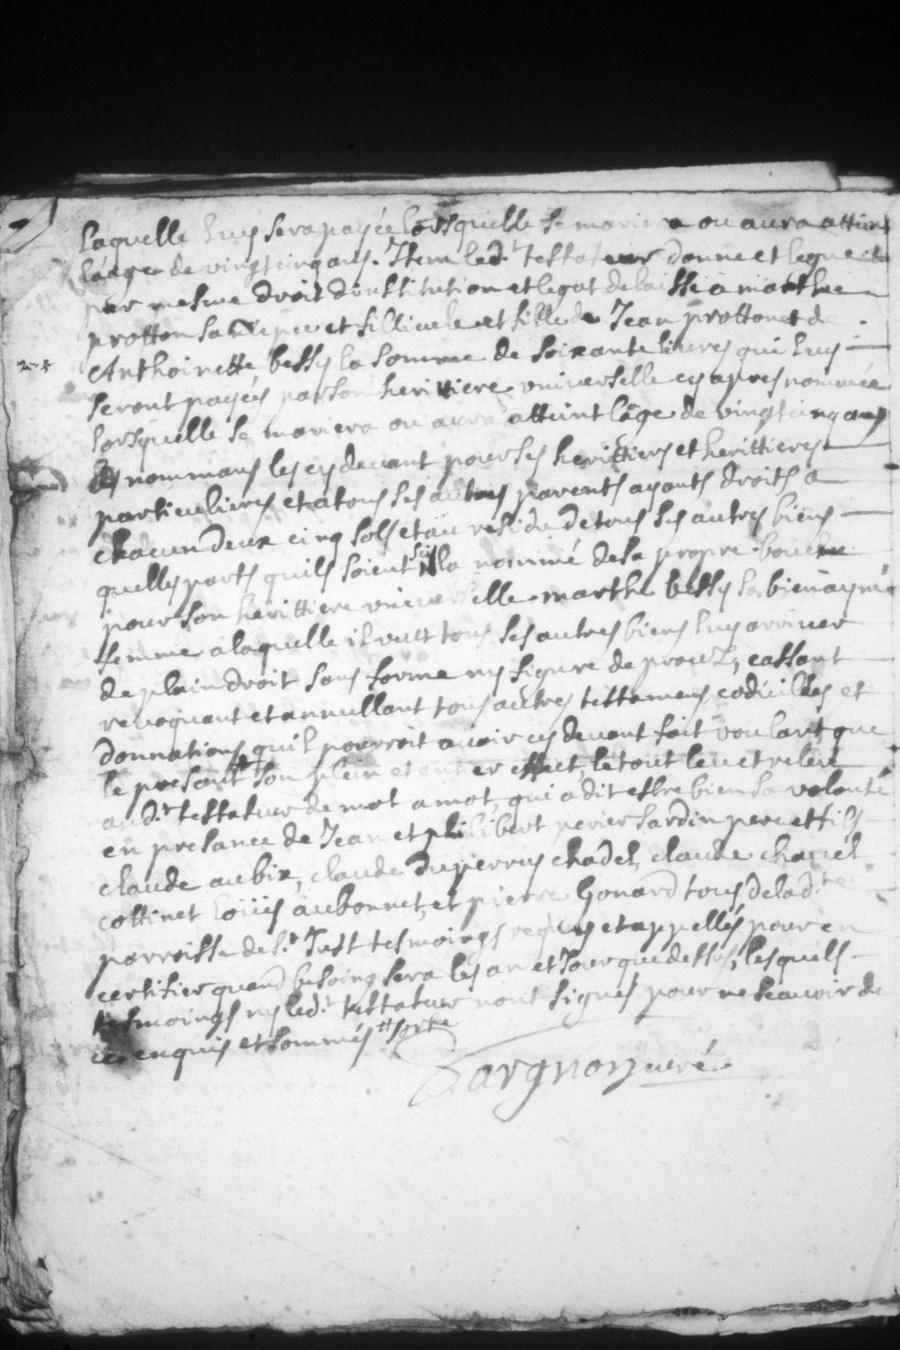 laquelle luy sera payée lorsquelle se mariera ou aura attint
láage de vingtcinq ans. Item led.t testateur donne et legue et
par mesme droit dinstitution et legat delaisse a marthe
protton sa niepce et fillieule et fille de Jean protton et de
Anthoinette bessy la somme de soixante livres qui luy
seront payés par son herittiere universelle cy apres nommée
lorsquelle se mariera ou aura attint lâge de vingtcinq ans
Et nommans les cy devant pour ses herittiers et herittieres
particulieres et a tous ses autres parents ayants droits a
chacun deux cinq sols et au residu de tous ses autres biens
quelles parts quils soient sis Il a nommé de sa propre bouche
pour son herittiere universelle marthe bessy sa bien aymé
femme a laquelle il veult tous ses autres biens luy arriver
de plain droit sans forme ny figure de proces, cassant
revoquant et annullant tous autres testamens codicilles et
donnations quil pourroit avoir cy devant fait voulant que
le presant son plein et entier effaict, le tout leu et releu
aud.t testateur de mot a mot, qui a dit estre bien sa volonté
en presance de Jean et philibert perier sardin pere et fils
claude aubix, claude duperrey chadel, claude chavel
cottinet loüis aubonnet, et pierre Gonard tous de lad.te
parroisse de S.t Just tesmoings requis et appellés pour en
certifier quand besoing sera les an et Jour que dessus, lesquels
tesmoings ny led.t testateur nont signés pour ne scavoir de
ce enquis et sommés
Dargnon curé